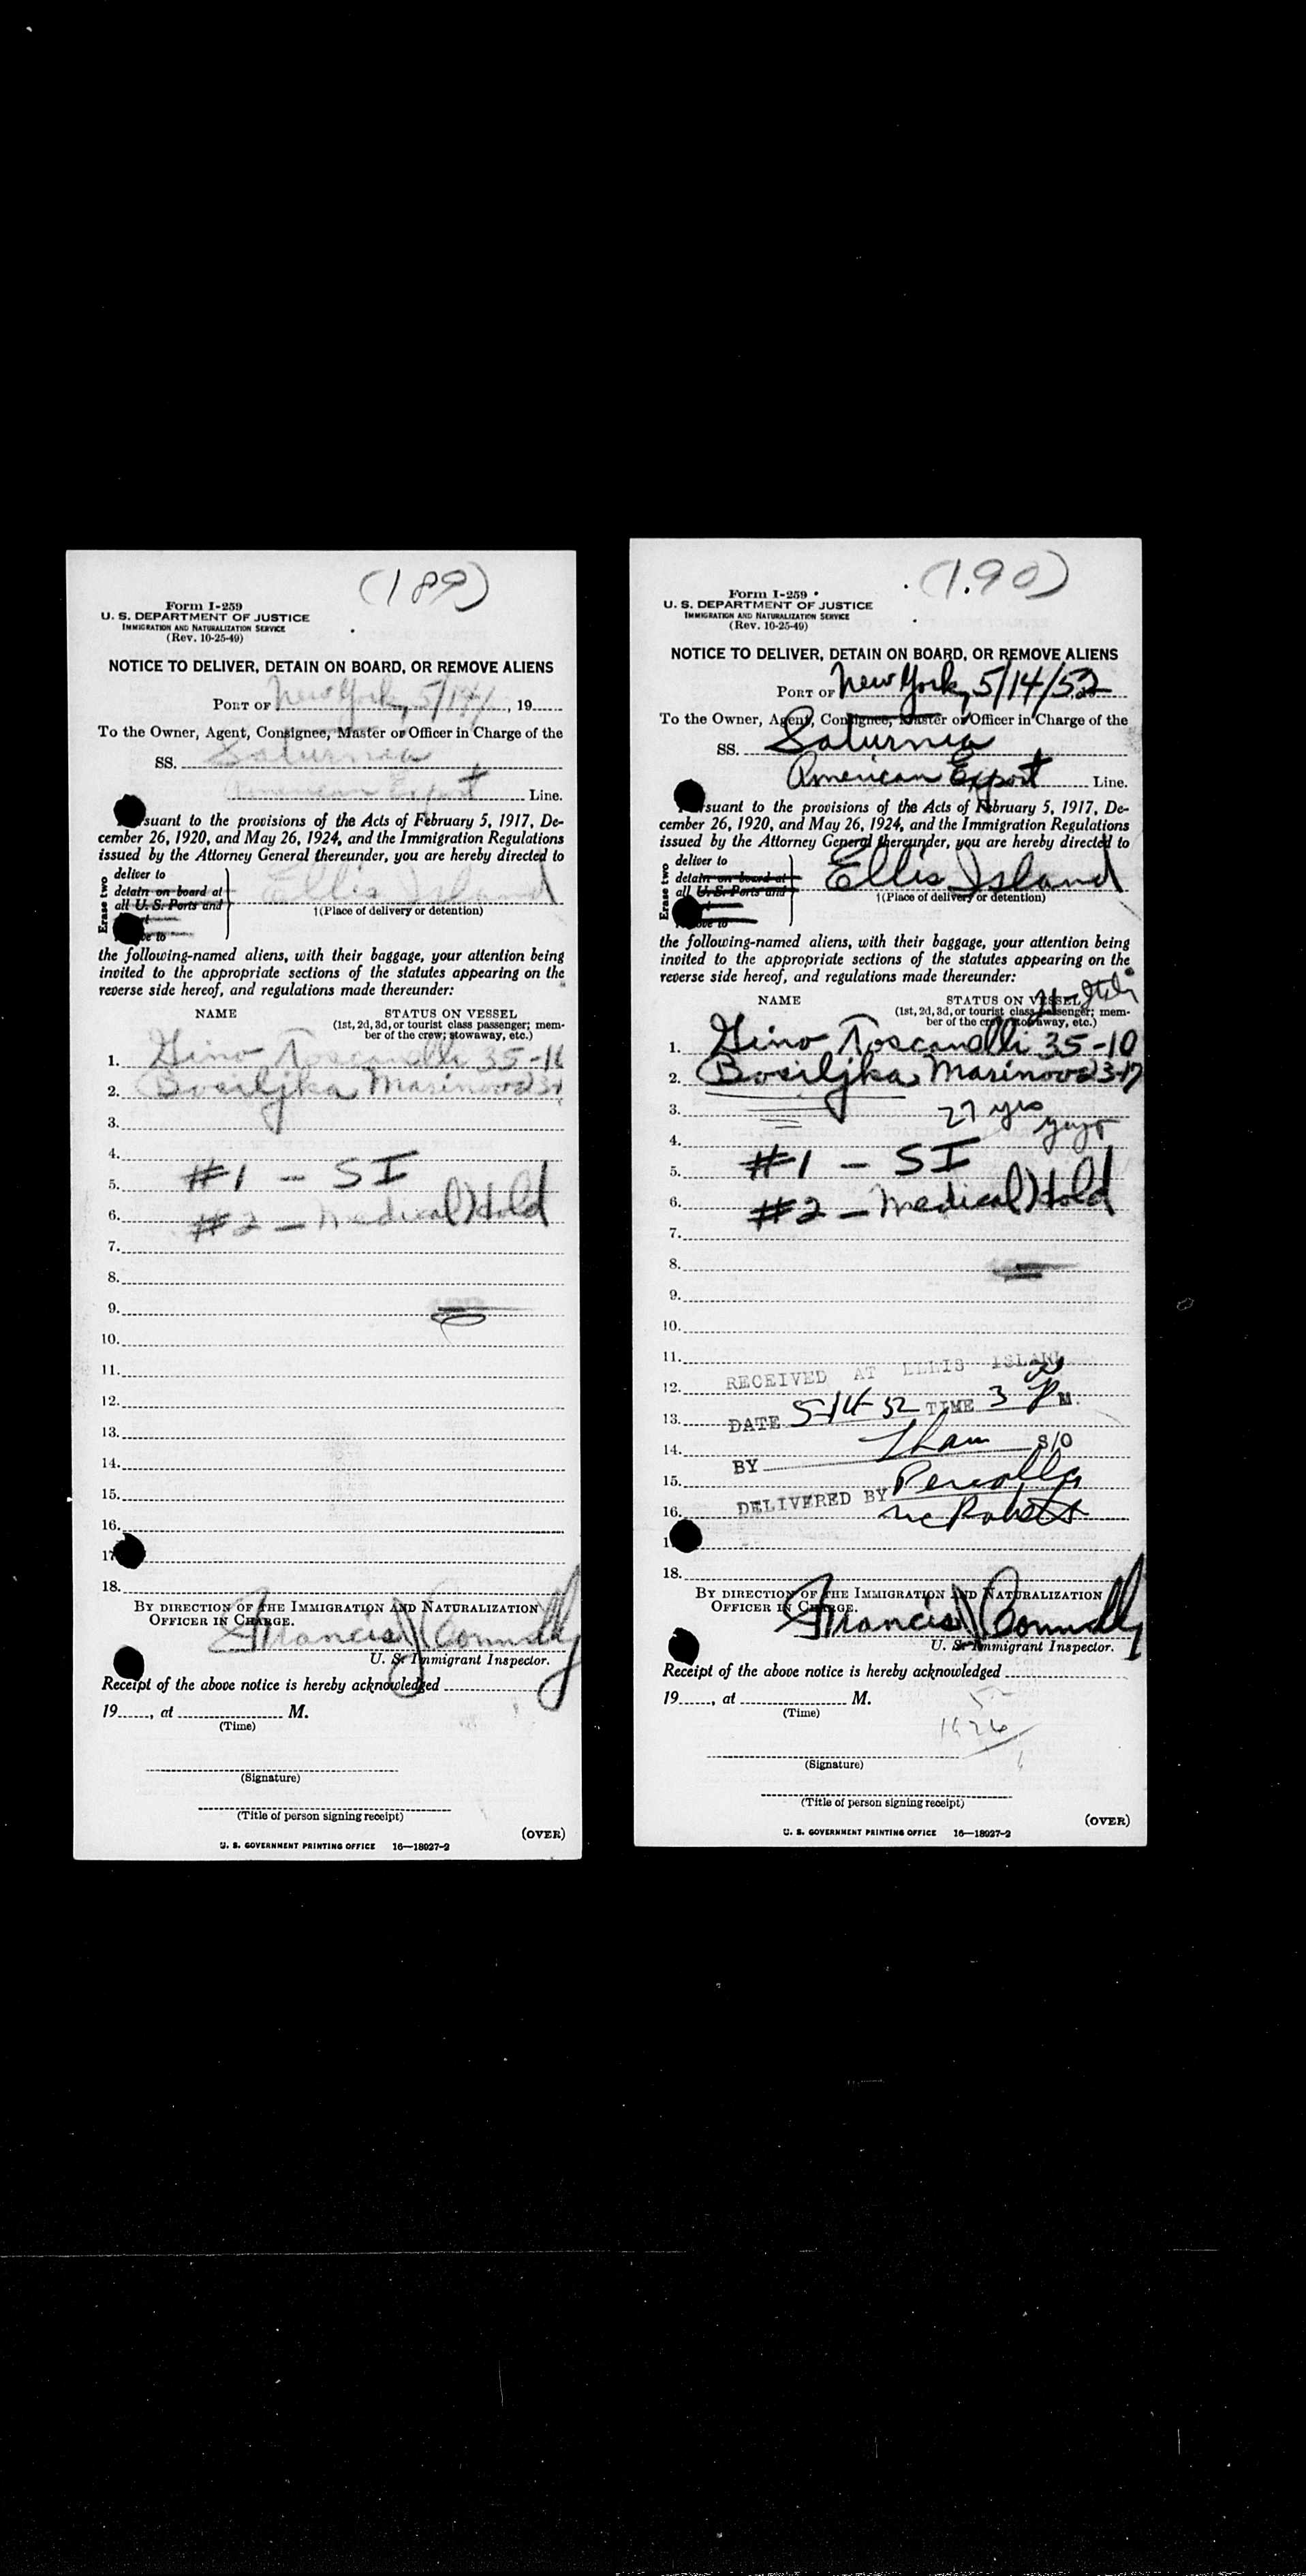 (189)
Form I-259
U. S. DEPARTMENT OF JUSTICE
IMMIGRATION AND NATURALIZATION SERVICE
(Rev. 10-25-49)
NOTICE TO DELIVER, DETAIN ON BOARD, OR REMOVE ALIENS
PORT OF New York, 5/14/, 19
To the Owner, Agent, Consignee, Master or Officer in Charge of the
SS. Saturnia
American Export Line.
suant to the provisions of the Acts of February 5, 1917, De-
cember 26, 1920, and May 26, 1924, and the Immigration Regulations
issued by the Attorney General thereunder, you are hereby directed to
Erase two
deliver to
detain on board at
all U. S. Ports and
to
Ellis Island
†(Place of delivery or detention)
the following-named aliens, with their baggage, your attention being
invited to the appropriate sections of the statutes appearing on the
reverse side hereof, and regulations made thereunder:
NAME STATUS ON VESSEL
(1st, 2d, 3d, or tourist class passenger; mem-
ber of the crew; stowaway, etc.)
1. Gino Toscanelli 35-
2. Bosiljka Marinova
3.
4.
5. #1 - SI
6. #2 - Medical Hold
7.
8.
9.
10.
11.
12.
13.
14.
15.
16.
17
18.
BY DIRECTION OF THE IMMIGRATION AND NATURALIZATION
OFFICER IN CHARGE.
Francis J Connolly
U. S. Immigrant Inspector.
Receipt of the above notice is hereby acknowledged
19, at M.
(Time)
(Signature)
(Title of person signing receipt)
(OVER)
U. S. GOVERNMENT PRINTING OFFICE 16—18027-2
(190)
Form I-259
U. S. DEPARTMENT OF JUSTICE
IMMIGRATION AND NATURALIZATION SERVICE
(Rev. 10-25-49)
NOTICE TO DELIVER, DETAIN ON BOARD, OR REMOVE ALIENS
PORT OF New York, 5/14/52
To the Owner, Agent, Consignee, Master or Officer in Charge of the
SS. Saturnia
American Export Line.
suant to the provisions of the Acts of February 5, 1917, De-
cember 26, 1920, and May 26, 1924, and the Immigration Regulations
issued by the Attorney General thereunder, you are hereby directed to
Erase two
deliver to
detain on board at
all U. S. Ports and
to
Ellis Island
†(Place of delivery or detention)
the following-named aliens, with their baggage, your attention being
invited to the appropriate sections of the statutes appearing on the
reverse side hereof, and regulations made thereunder:
NAME STATUS ON VESSEL
(1st, 2d, 3d, or tourist class passenger; mem-
ber of the crew; stowaway, etc.)
1. Gino Toscanelli 35-10
2. Bosiljka Marinova 23-17
3. 27 yrs
4. yugo
5. #1 - SI
6. #2 - Medical Hold
7.
8.
9.
10.
11.
RECEIVED AT ELLIS ISLAND
12.
13. DATE 5-14-52 TIME 3 P M.
14. BY S/O
15.
16. DELIVERED BY
McRoberts
1
18.
BY DIRECTION OF THE IMMIGRATION AND NATURALIZATION
OFFICER IN CHARGE.
Francis J Connolly
U. S. Immigrant Inspector.
Receipt of the above notice is hereby acknowledged
19, at M.
(Time)
(Signature)
(Title of person signing receipt)
(OVER)
U. S. GOVERNMENT PRINTING OFFICE 16—18027-2